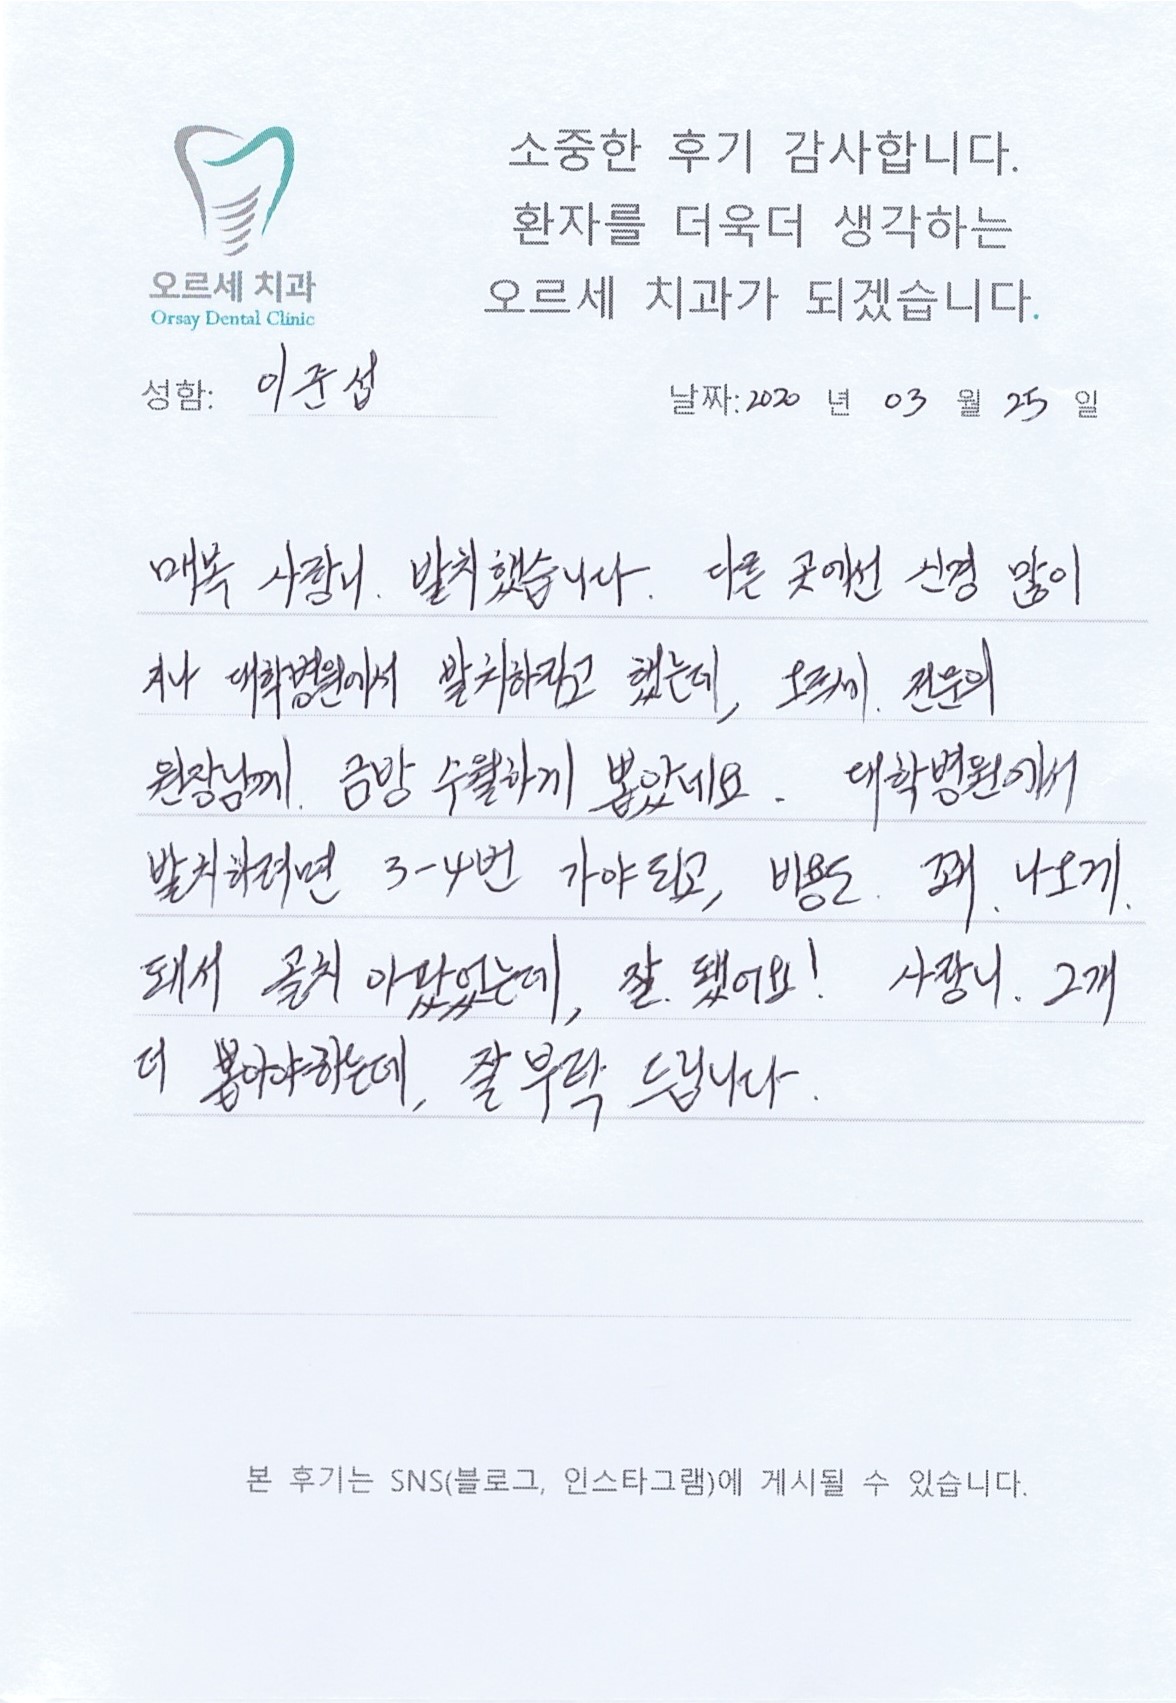 소중한 후기 감사합니다.
환자를 더욱더 생각하는
오르세 치과가 되겠습니다.
오르세 치과
Orsay Dental Clinic
성함: 이준섭
날짜: 2020 년 03 월 25 일
매복 사랑니. 발치했습니다. 다른 곳에선 신경 많이
지나 대학병원에서 발치하라고 했는데, 오르세. 전문의
원장님께. 금방 수월하게 뽑았네요. 대학병원에서
발치하려면 3-4번 가야되고, 비용도. 꽤. 나오게.
돼서 골치 아팠었는데, 잘. 됐어요! 사랑니. 2개
더 뽑아야하는데, 잘 부탁 드립니다.
본 후기는 SNS(블로그, 인스타그램)에 게시될 수 있습니다.